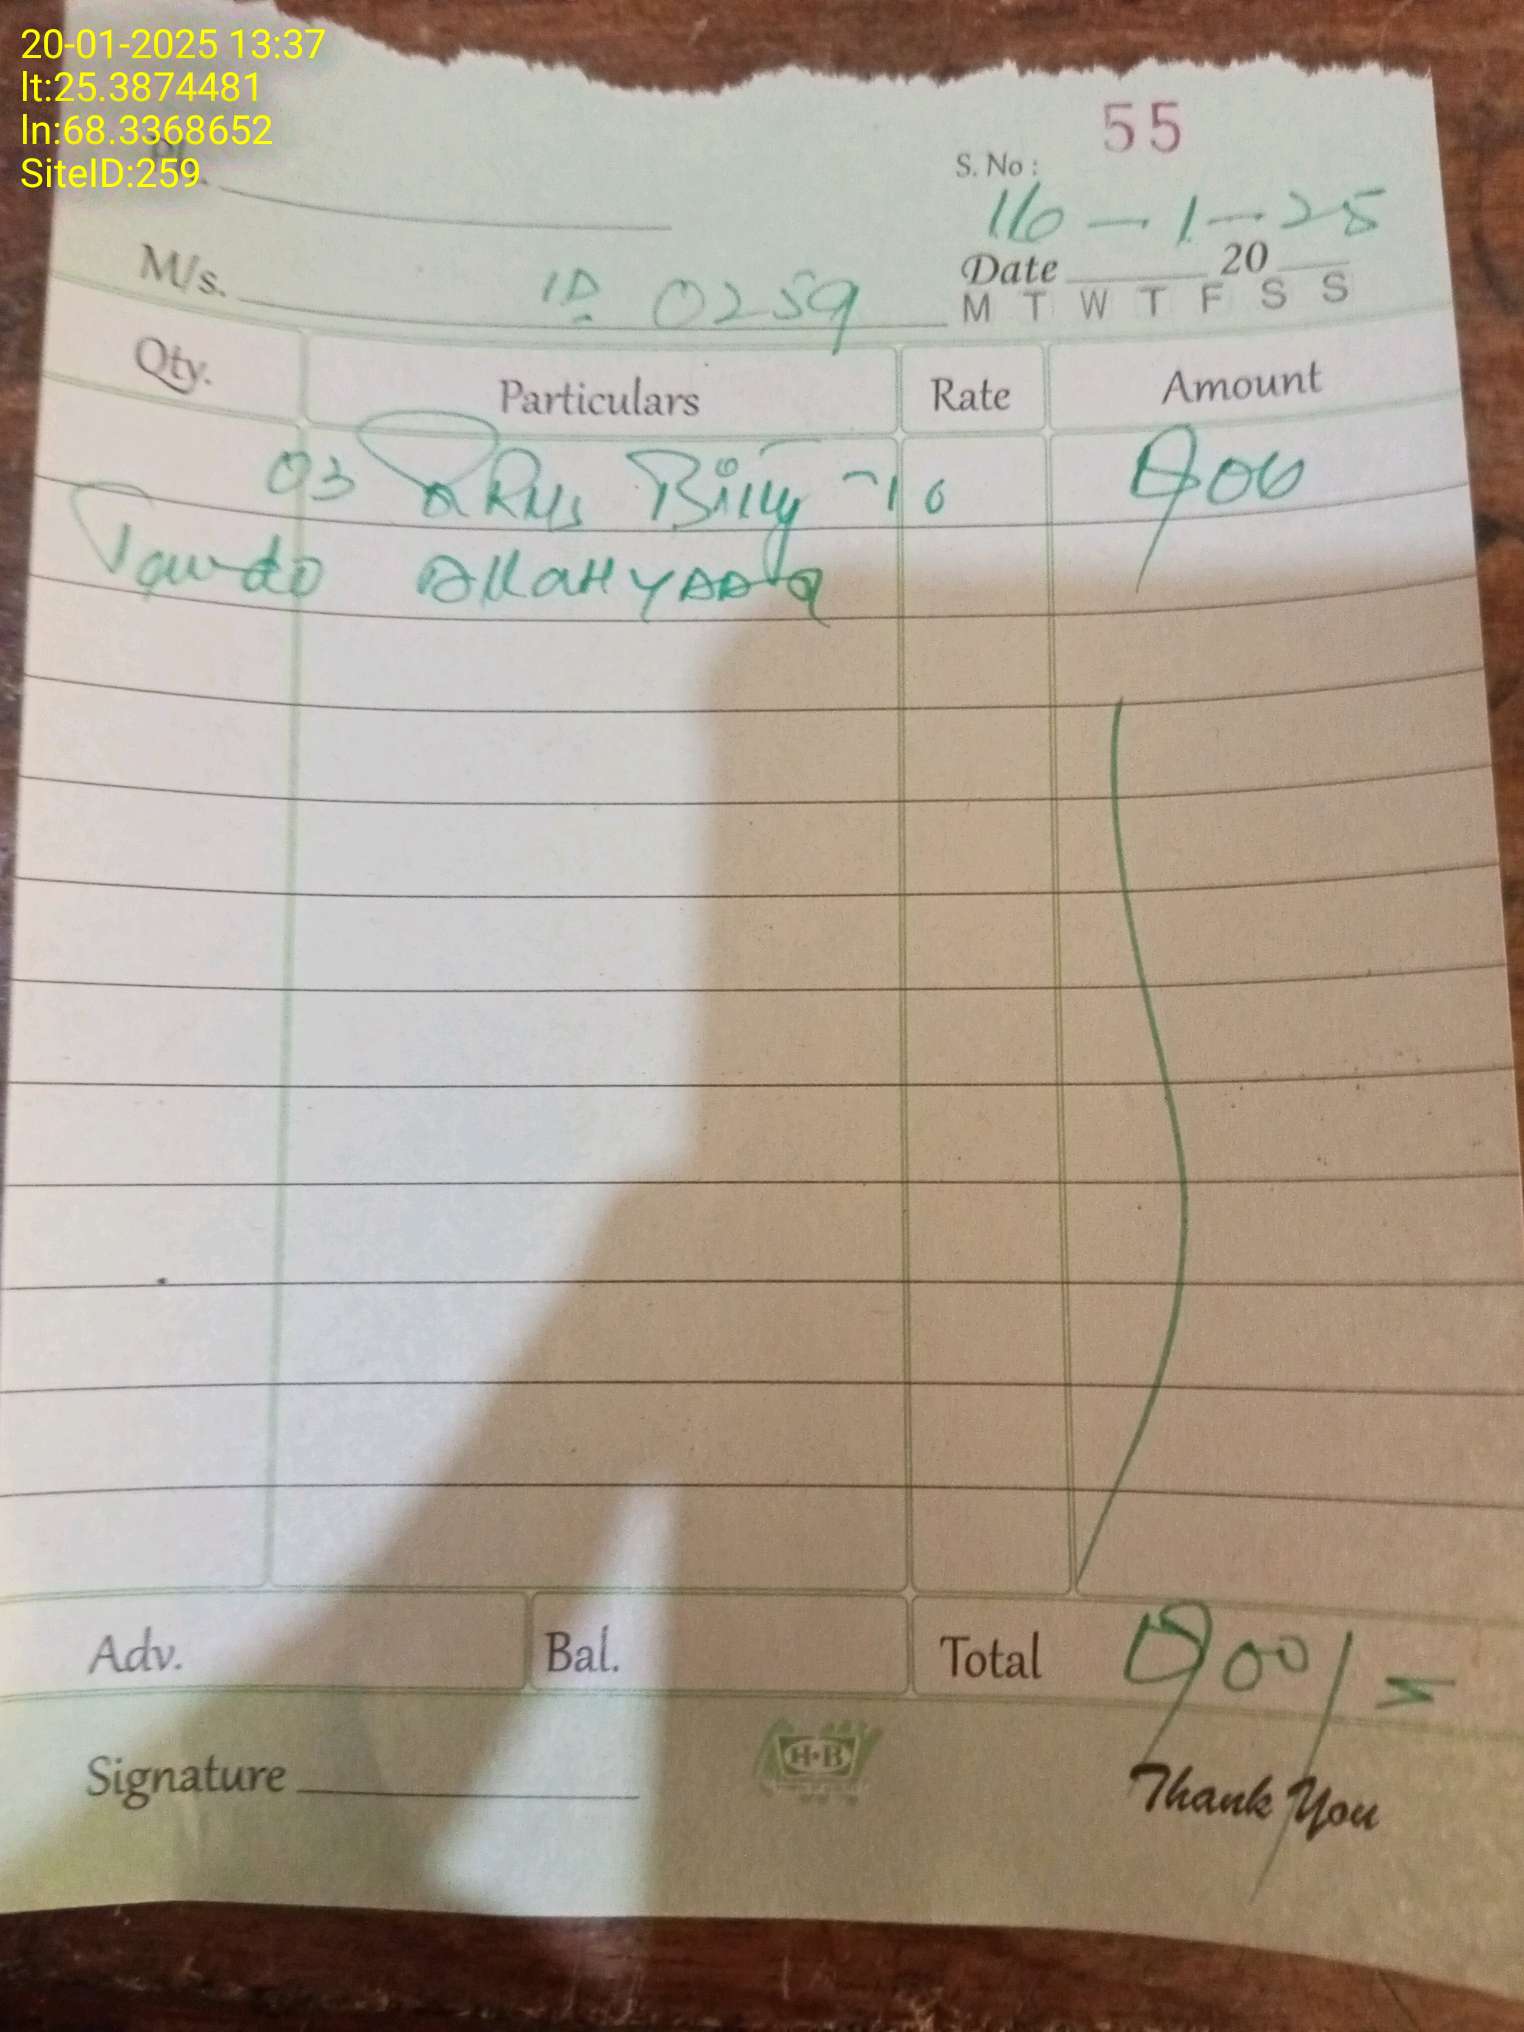 20-01-2025 13:37
lt:25.3874481
ln:68.3368652
SiteID:259
55
S. No :
16-1-25
Date 20
M T W T F S S
M/s. ID 0259
Qty. Particulars Rate Amount
03 900
Tando Allahyar
Adv. Bal. Total 900/=
Signature
H·B
Thank You